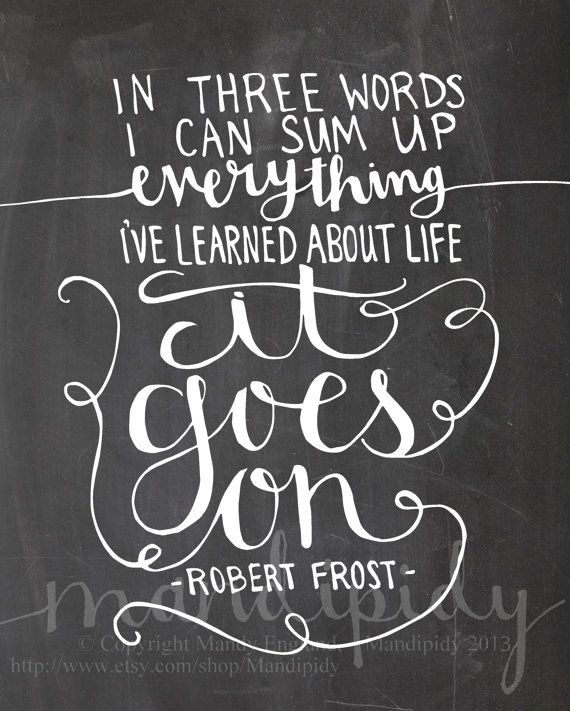 IN THREE WORDS
I CAN SUM UP
everything
I'VE LEARNED ABOUT LIFE
it
goes
on
-ROBERT FROST-
mandipidy
© Copyright Mandy England, Mandipidy 2013
http://www.etsy.com/shop/Mandipidy